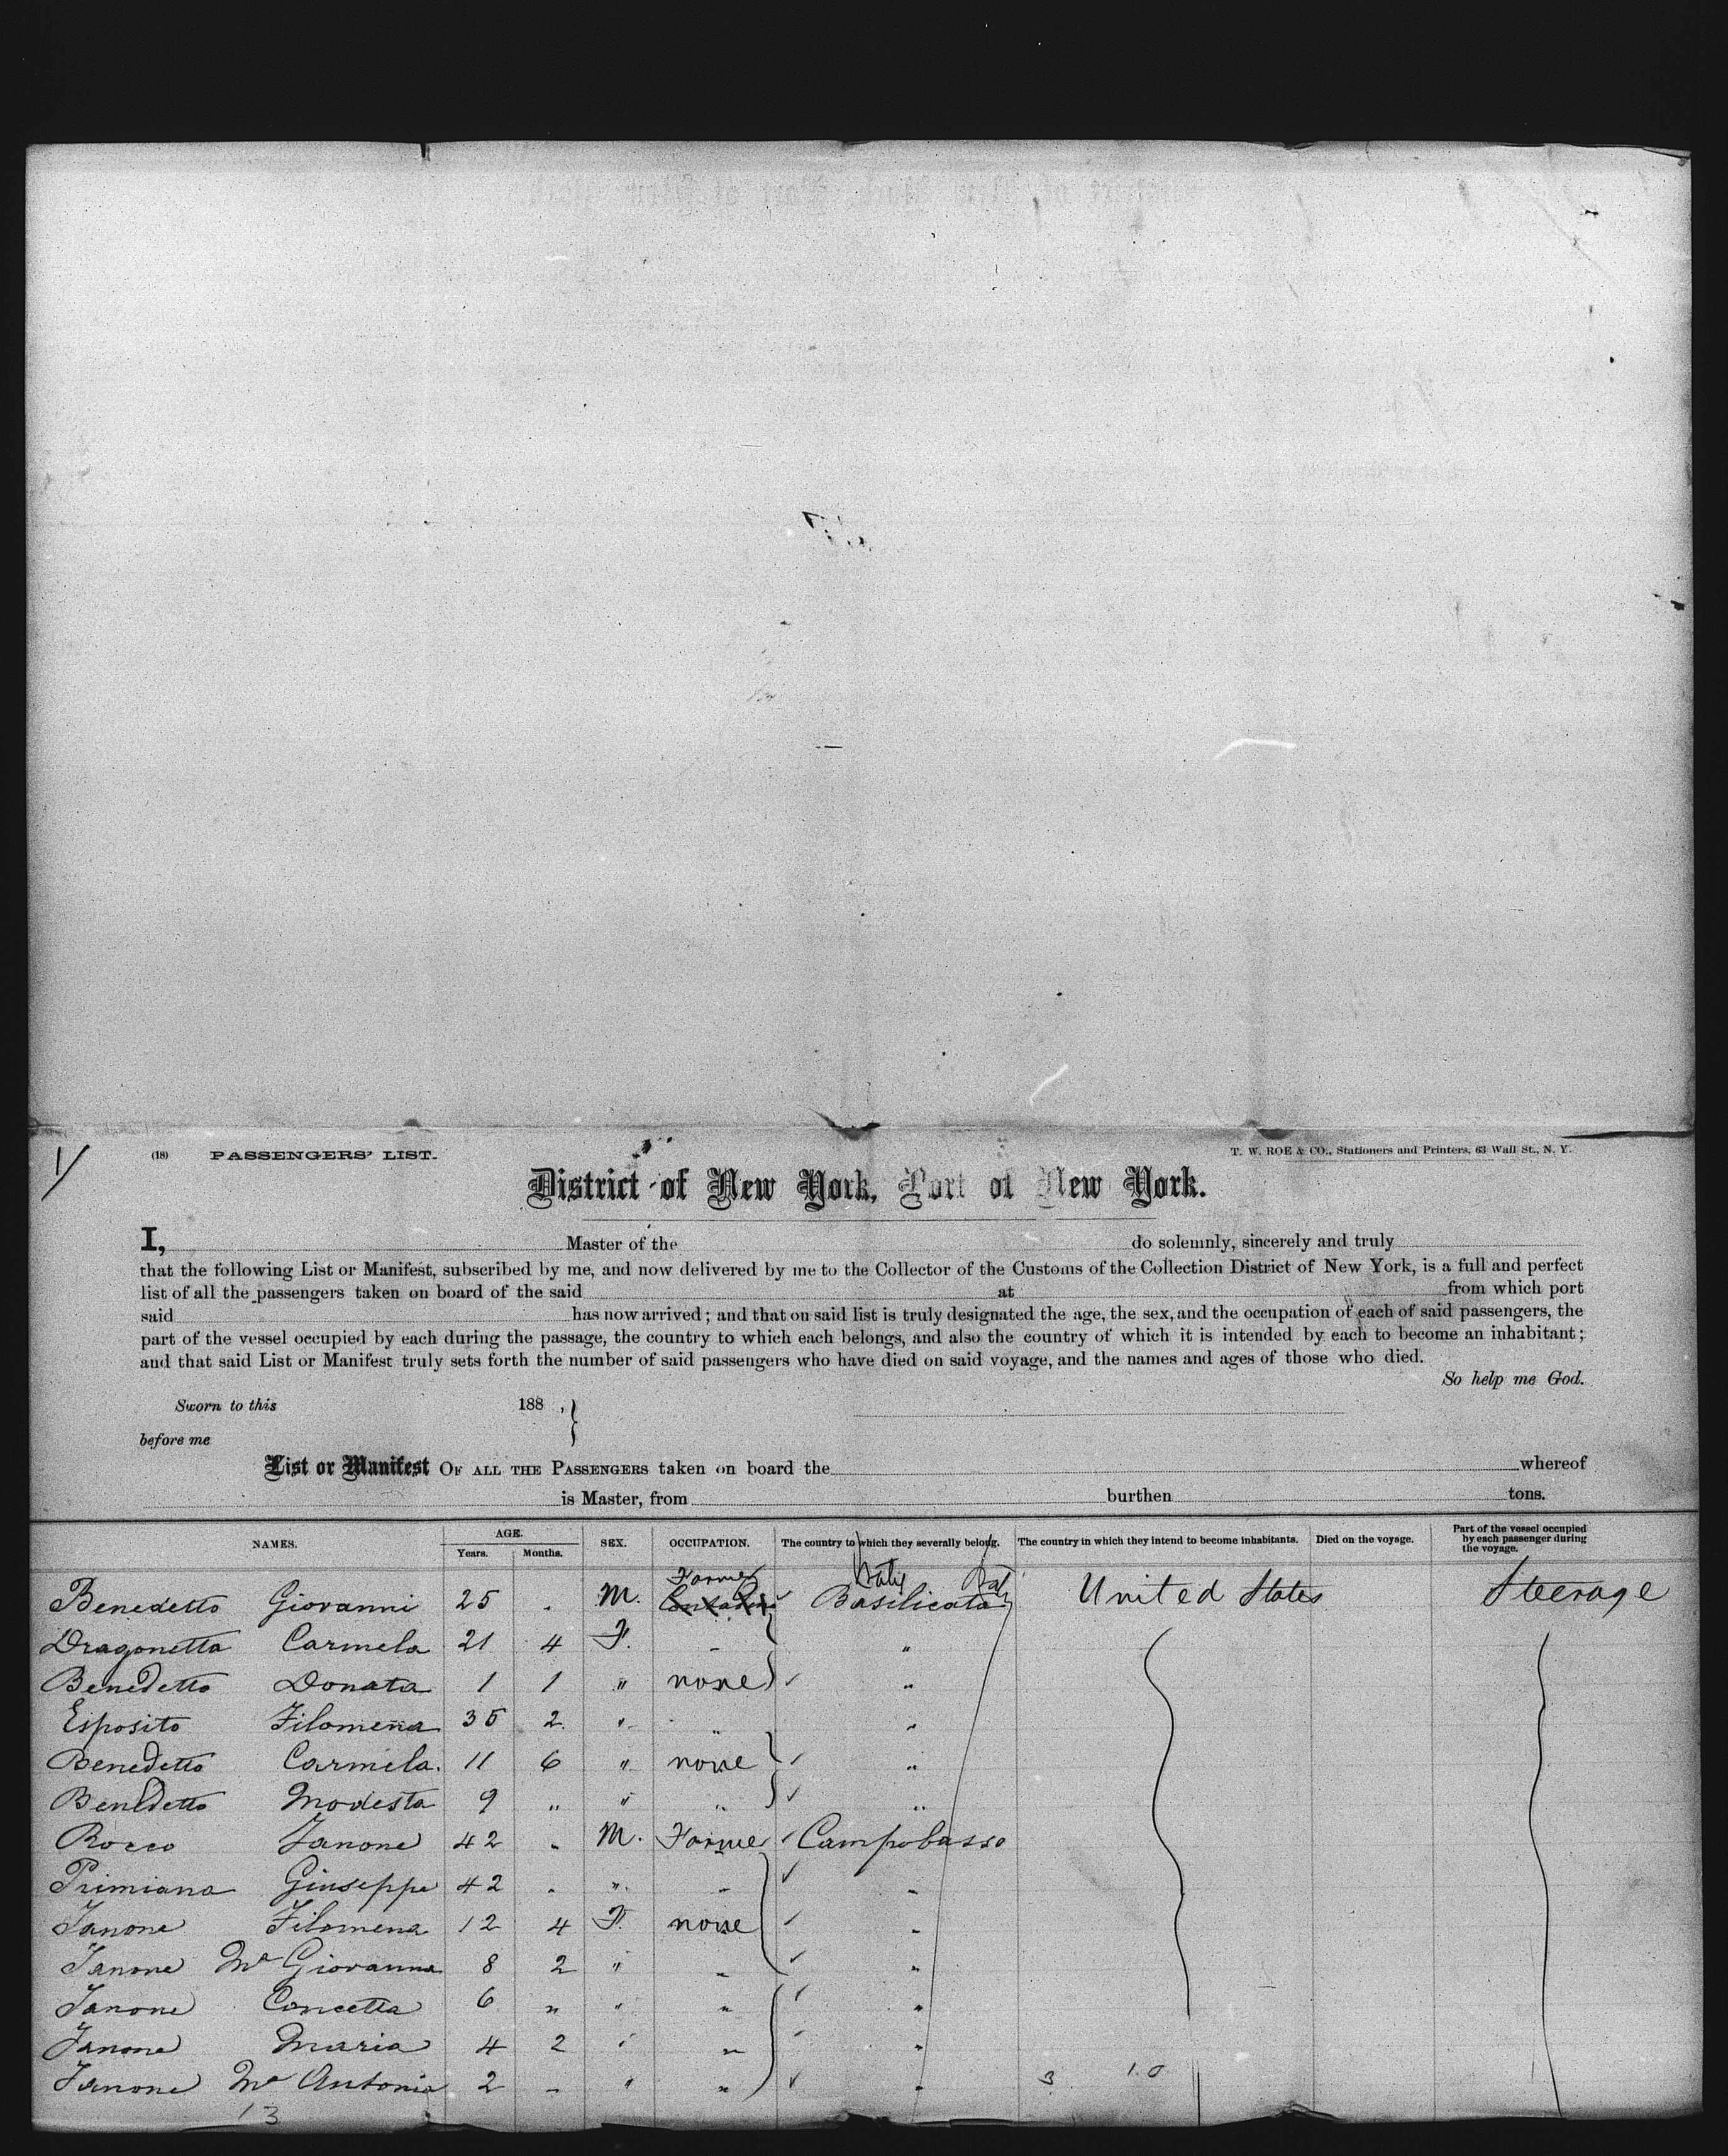 1/
(18) PASSENGERS' LIST.
T. W. ROE & CO., Stationers and Printers, 63 Wall St., N. Y.
District of New York, Port of New York.
I, Master of the do solemnly, sincerely and truly
that the following List or Manifest, subscribed by me, and now delivered by me to the Collector of the Customs of the Collection District of New York, is a full and perfect
list of all the passengers taken on board of the said at from which port
said has now arrived; and that on said list is truly designated the age, the sex, and the occupation of each of said passengers, the
part of the vessel occupied by each during the passage, the country to which each belongs, and also the country of which it is intended by each to become an inhabitant;
and that said List or Manifest truly sets forth the number of said passengers who have died on said voyage, and the names and ages of those who died.
So help me God.
Sworn to this 188 ,
before me
List or Manifest OF ALL THE PASSENGERS taken on board the whereof
is Master, from burthen tons.
NAMES. AGE. Years. Months. SEX. OCCUPATION. The country to which they severally belong. The country in which they intend to become inhabitants. Died on the voyage. Part of the vessel occupied by each passenger during the voyage.
Farmer Italy
Benedetto Giovanni 25 . M. Contadini Basilicata United States Steerage
Dragonetta Carmela 21 4 F. - "
Benedetto Donata 1 1 " none ✓ "
Esposito Filomena 35 2. " " "
Benedetto Carmela. 11 6 " none ✓ "
Benedetto Modesta 9 " " " ✓ "
Rocco Janone 42 " M. Farme ✓ Campobasso
Primiana Giuseppe 42 . " - ✓ "
Janone Filomena 12 4 F. none ✓ "
Janone Ma Giovanna 8 2 " " ✓ "
Janone Concetta 6 " " " ✓ "
Janone Maria 4 2 " " "
Janone Ma Antonia 2 - " " ✓ " 3 10
13